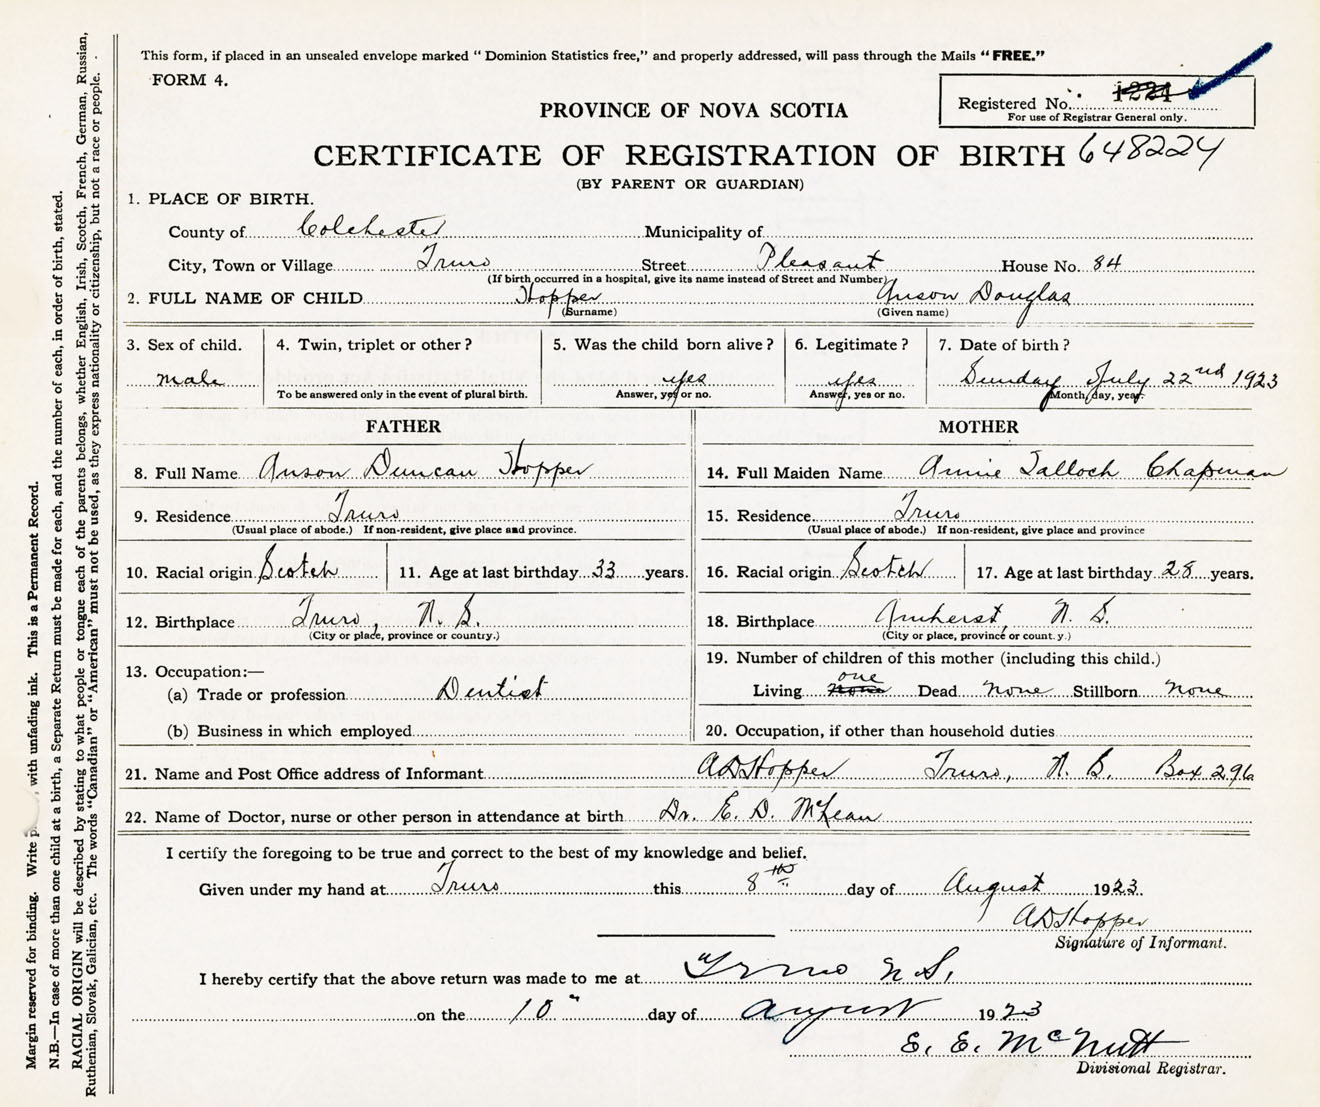 This form, if placed in an unsealed envelope marked " Dominion Statistics free," and properly addressed, will pass through the Mails "FREE."
FORM 4.
Registered No. 1224
For use of Registrar General only.
PROVINCE OF NOVA SCOTIA
CERTIFICATE OF REGISTRATION OF BIRTH 648224
(BY PARENT OR GUARDIAN)
1. PLACE OF BIRTH.
County of Colchester Municipality of
City, Town or Village Truro Street Pleasant House No. 84
(If birth occurred in a hospital, give its name instead of Street and Number)
2. FULL NAME OF CHILD Hopper Anson Douglas
(Surname) (Given name)
3. Sex of child. 4. Twin, triplet or other? 5. Was the child born alive? 6. Legitimate? 7. Date of birth?
male yes yes Sunday July 22nd 1923
To be answered only in the event of plural birth. Answer, yes or no. Answer, yes or no. Month, day, year.
FATHER MOTHER
8. Full Name Anson Duncan Hopper 14. Full Maiden Name Annie Talloch Chapman
9. Residence Truro 15. Residence Truro
(Usual place of abode.) If non-resident, give place and province. (Usual place of abode.) If non-resident, give place and province
10. Racial origin Scotch 11. Age at last birthday 33 years. 16. Racial origin Scotch 17. Age at last birthday 28 years.
12. Birthplace Truro, N. S. 18. Birthplace Amherst, N. S.
(City or place, province or country.) (City or place, province or count.y.)
19. Number of children of this mother (including this child.)
13. Occupation:—
one
(a) Trade or profession Dentist Living none Dead none Stillborn none
(b) Business in which employed 20. Occupation, if other than household duties
21. Name and Post Office address of Informant A D Hopper Truro, N. S. Box 296
22. Name of Doctor, nurse or other person in attendance at birth Dr. E. D. McLean
I certify the foregoing to be true and correct to the best of my knowledge and belief.
Given under my hand at Truro this 8th day of August 1923
A D Hopper
Signature of Informant.
I hereby certify that the above return was made to me at Truro N. S.
on the 10" day of August 1923
E. E. McNutt
Divisional Registrar.
Margin reserved for binding. Write , with unfading ink. This is a Permanent Record.
N.B.—In case of more than one child at a birth, a Separate Return must be made for each, and the number of each, in order of birth, stated.
RACIAL ORIGIN will be described by stating to what people or tongue each of the parents belongs, whether English, Irish, Scotch, French, German, Russian,
Ruthenian, Slovak, Galician, etc. The words "Canadian" or "American" must not be used, as they express nationality or citizenship, but not a race or people.